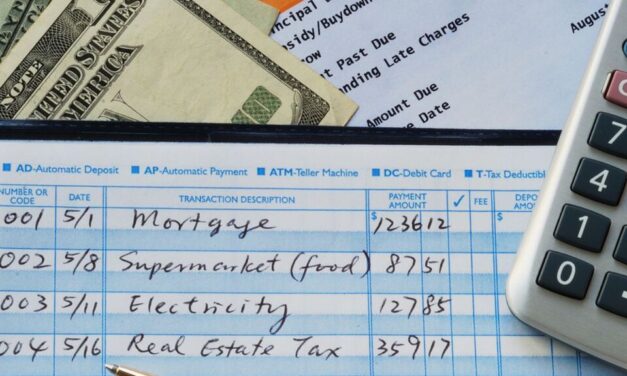 NOTE
UNITED STATES
AMERICA
100
incipal
sidy/Buydown
ow
t Past Due
nding Late Charges
Amount Due
e Date
August
AD-Automatic Deposit AP-Automatic Payment ATM-Teller Machine DC-Debit Card T-Tax Deductibl
NUMBER OR CODE DATE TRANSACTION DESCRIPTION PAYMENT AMOUNT ✓ FEE DEPO AM
001 5/1 Mortgage $ 1236 12 $
002 5/8 Supermarket (food) 87 51
003 5/11 Electricity 127 85
004 5/16 Real Estate Tax 359 17
C
7
4
1
0